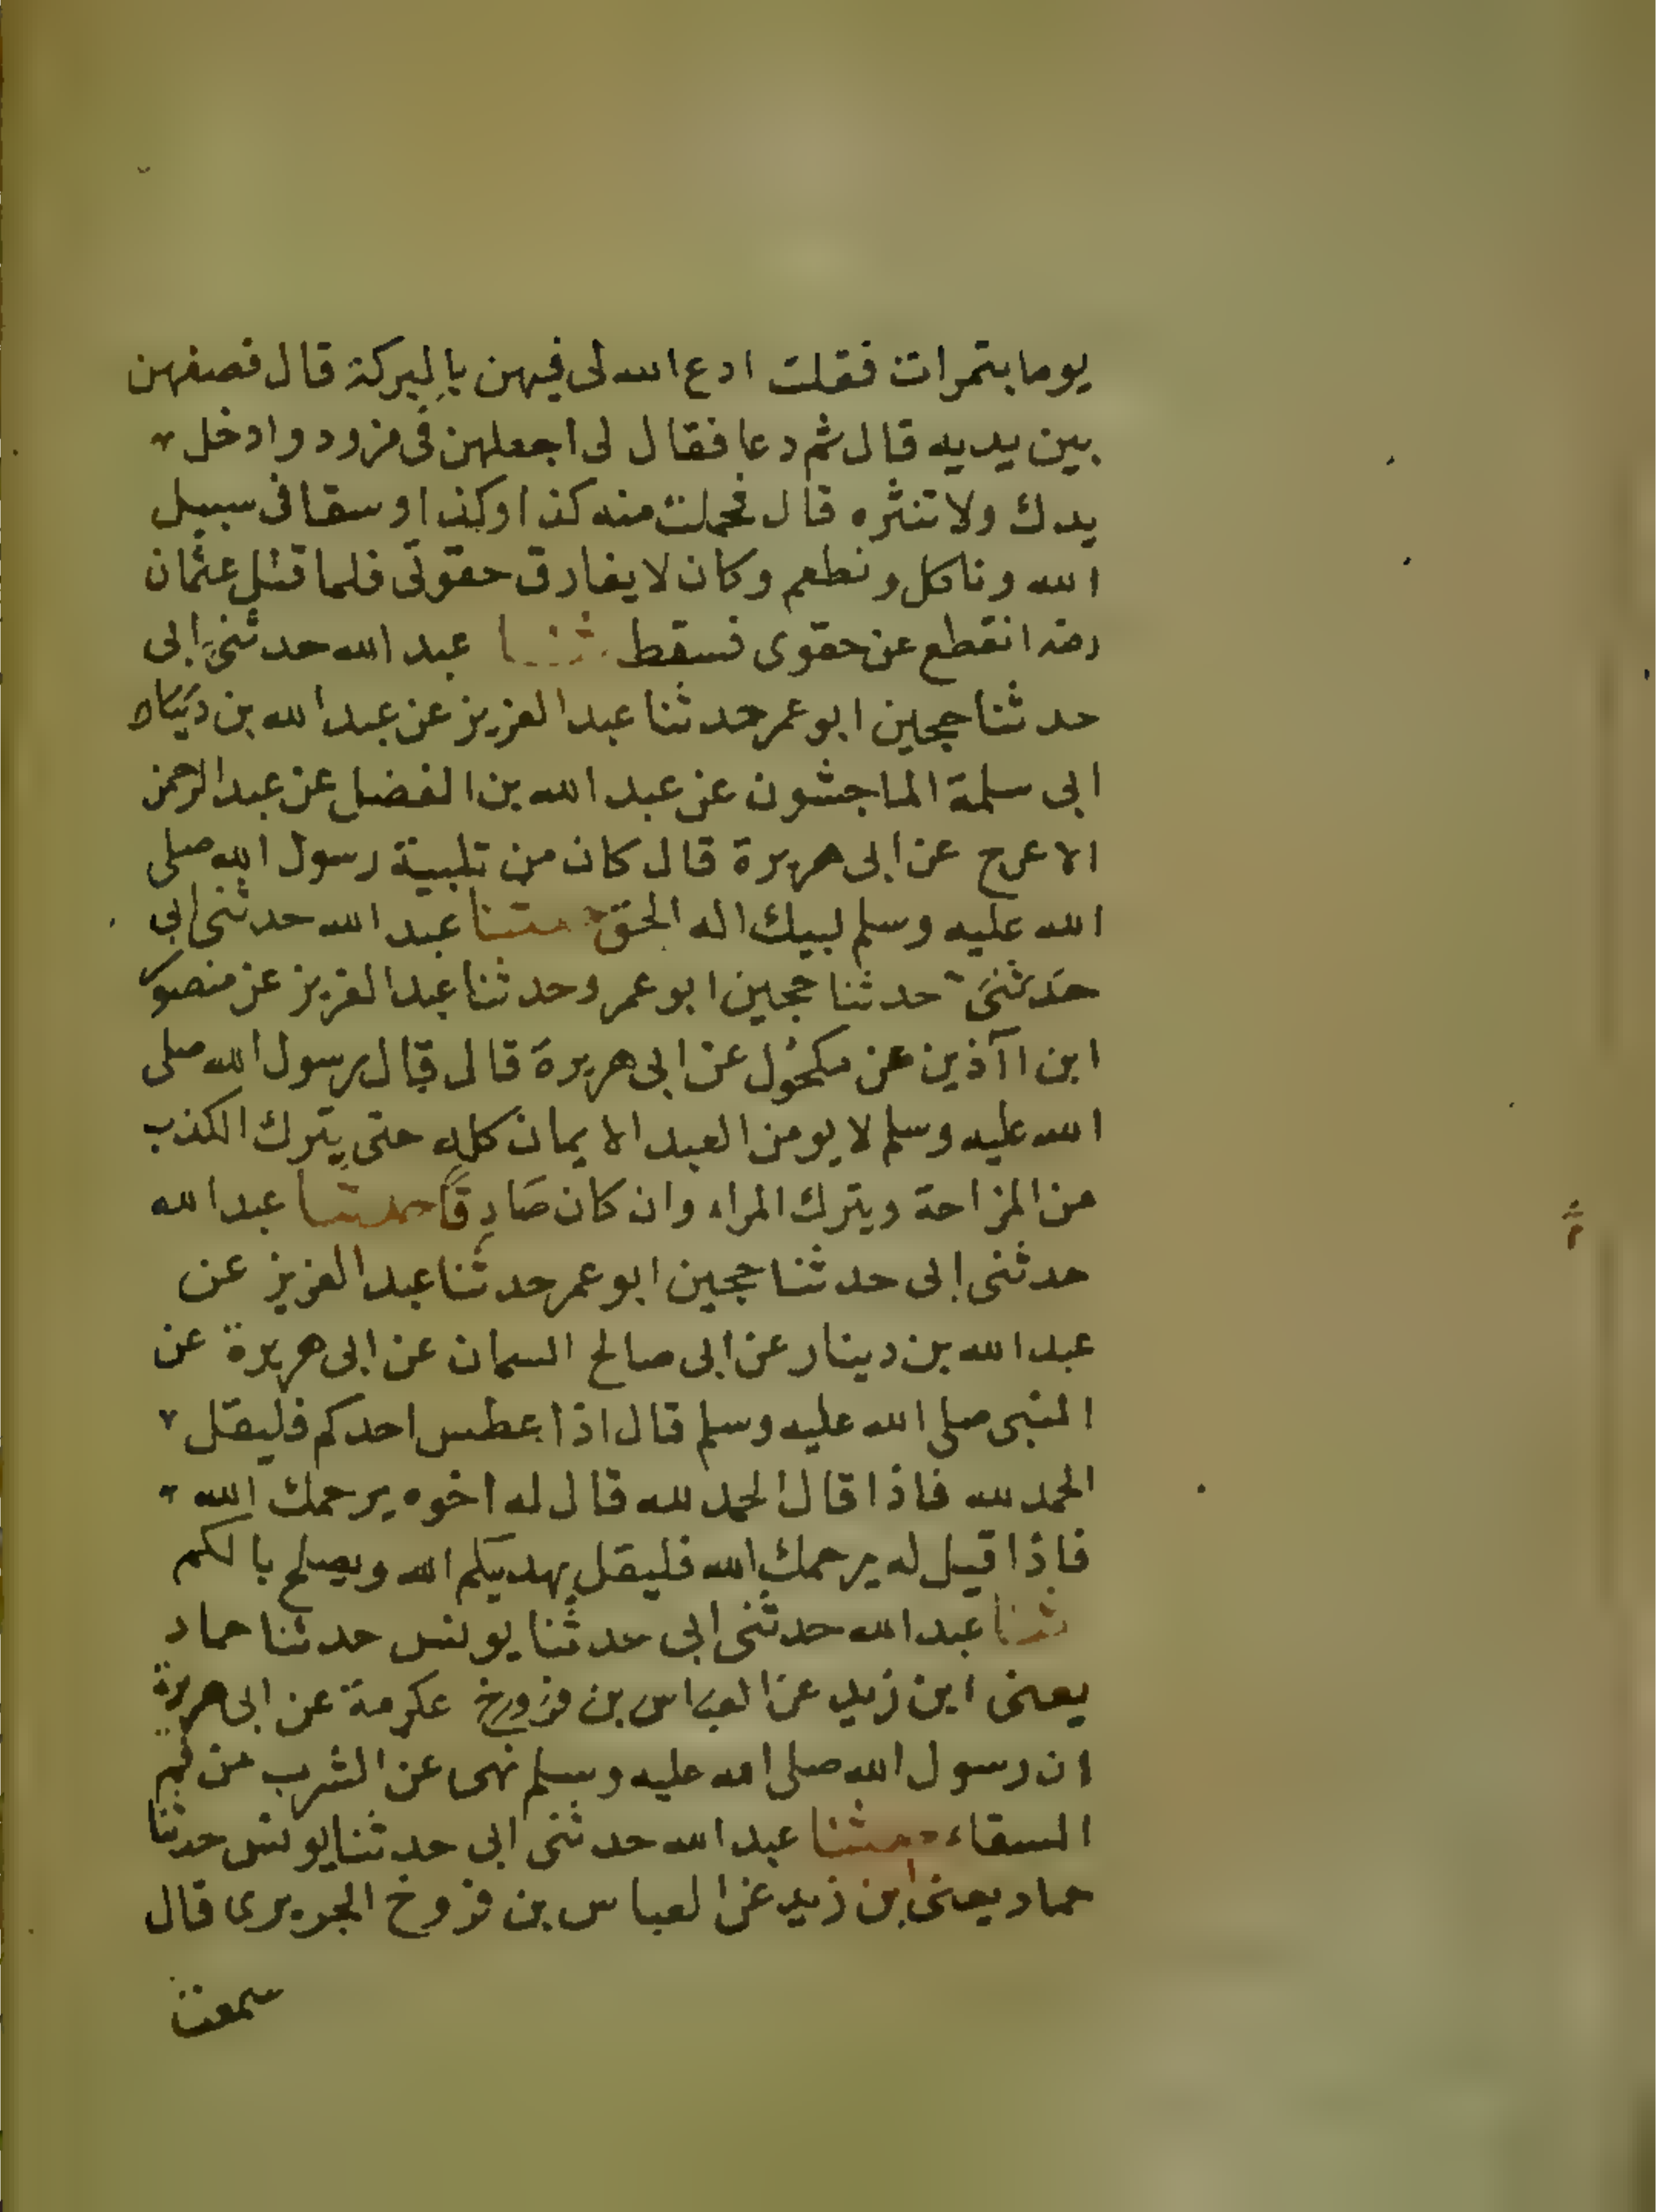 يوما بتمرات فقلت ادع الله لى فيهن بالبركة قال فصفهن
بين يديه قال ثم دعا فقال لى اجعلهن فى مزود وادخل
يدك ولا تنثره قال فحملت منه كذا وكذا وسقا فى سبيل
الله وناكل ونطعم وكان لا يفارق حقوتى فلما قتل عثمان
رضه انقطع عن حقوى فسقط ثنا عبد الله حدثنى ابى
حدثنا حجين ابو عمر حدثنا عبد العزيز عن عبد الله بن
ابى سلمة الماجشون عن عبد الله بن الفضل عن عبد الرحمن
الاعرج عن ابى هريرة قال كان من تلبية رسول الله صلى
الله عليه وسلم لبيك اله الحق حدثنا عبد الله حدثنى ابى
حدثنى حدثنا حجين ابو عمرو حدثنا عبد العزيز عن منصور
ابن اآذين عن مكحول عن ابى هريرة قال قال رسول الله صلى
الله عليه وسلم لا يومن العبد الايمان كله حتى يترك الكذب
من المزاحة ويترك المراء وان كان صَادِقًا حدثنا عبد الله
حدثنى ابى حدثنا حجين ابو عمر حدثنا عبد العزيز عن
عبد الله بن دينار عن ابى صالح السمان عن ابى هريرة عن
النبى صلى الله عليه وسلم قال اذا عطس احدكم فليقل
الحمد لله فاذا قال الحمد لله قال له اخوه يرحمك الله
فاذا قيل له يرحمك الله فليقل يهديكم الله ويصلح بالكم
ثنا عبد الله حدثنى ابى حدثنا يونس حدثنا حماد
يعنى ابن زيد عن العباس بن فروخ عكرمة عن ابى هريرة
ان رسول الله صلى الله عليه وسلم نهى عن الشرب من فم
السقاء حدثنا عبد الله حدثنى ابى حدثنا يونس حدثنا
حماد يعنى ابن زيد عن العباس بن فروخ الجريرى قال
سمعت